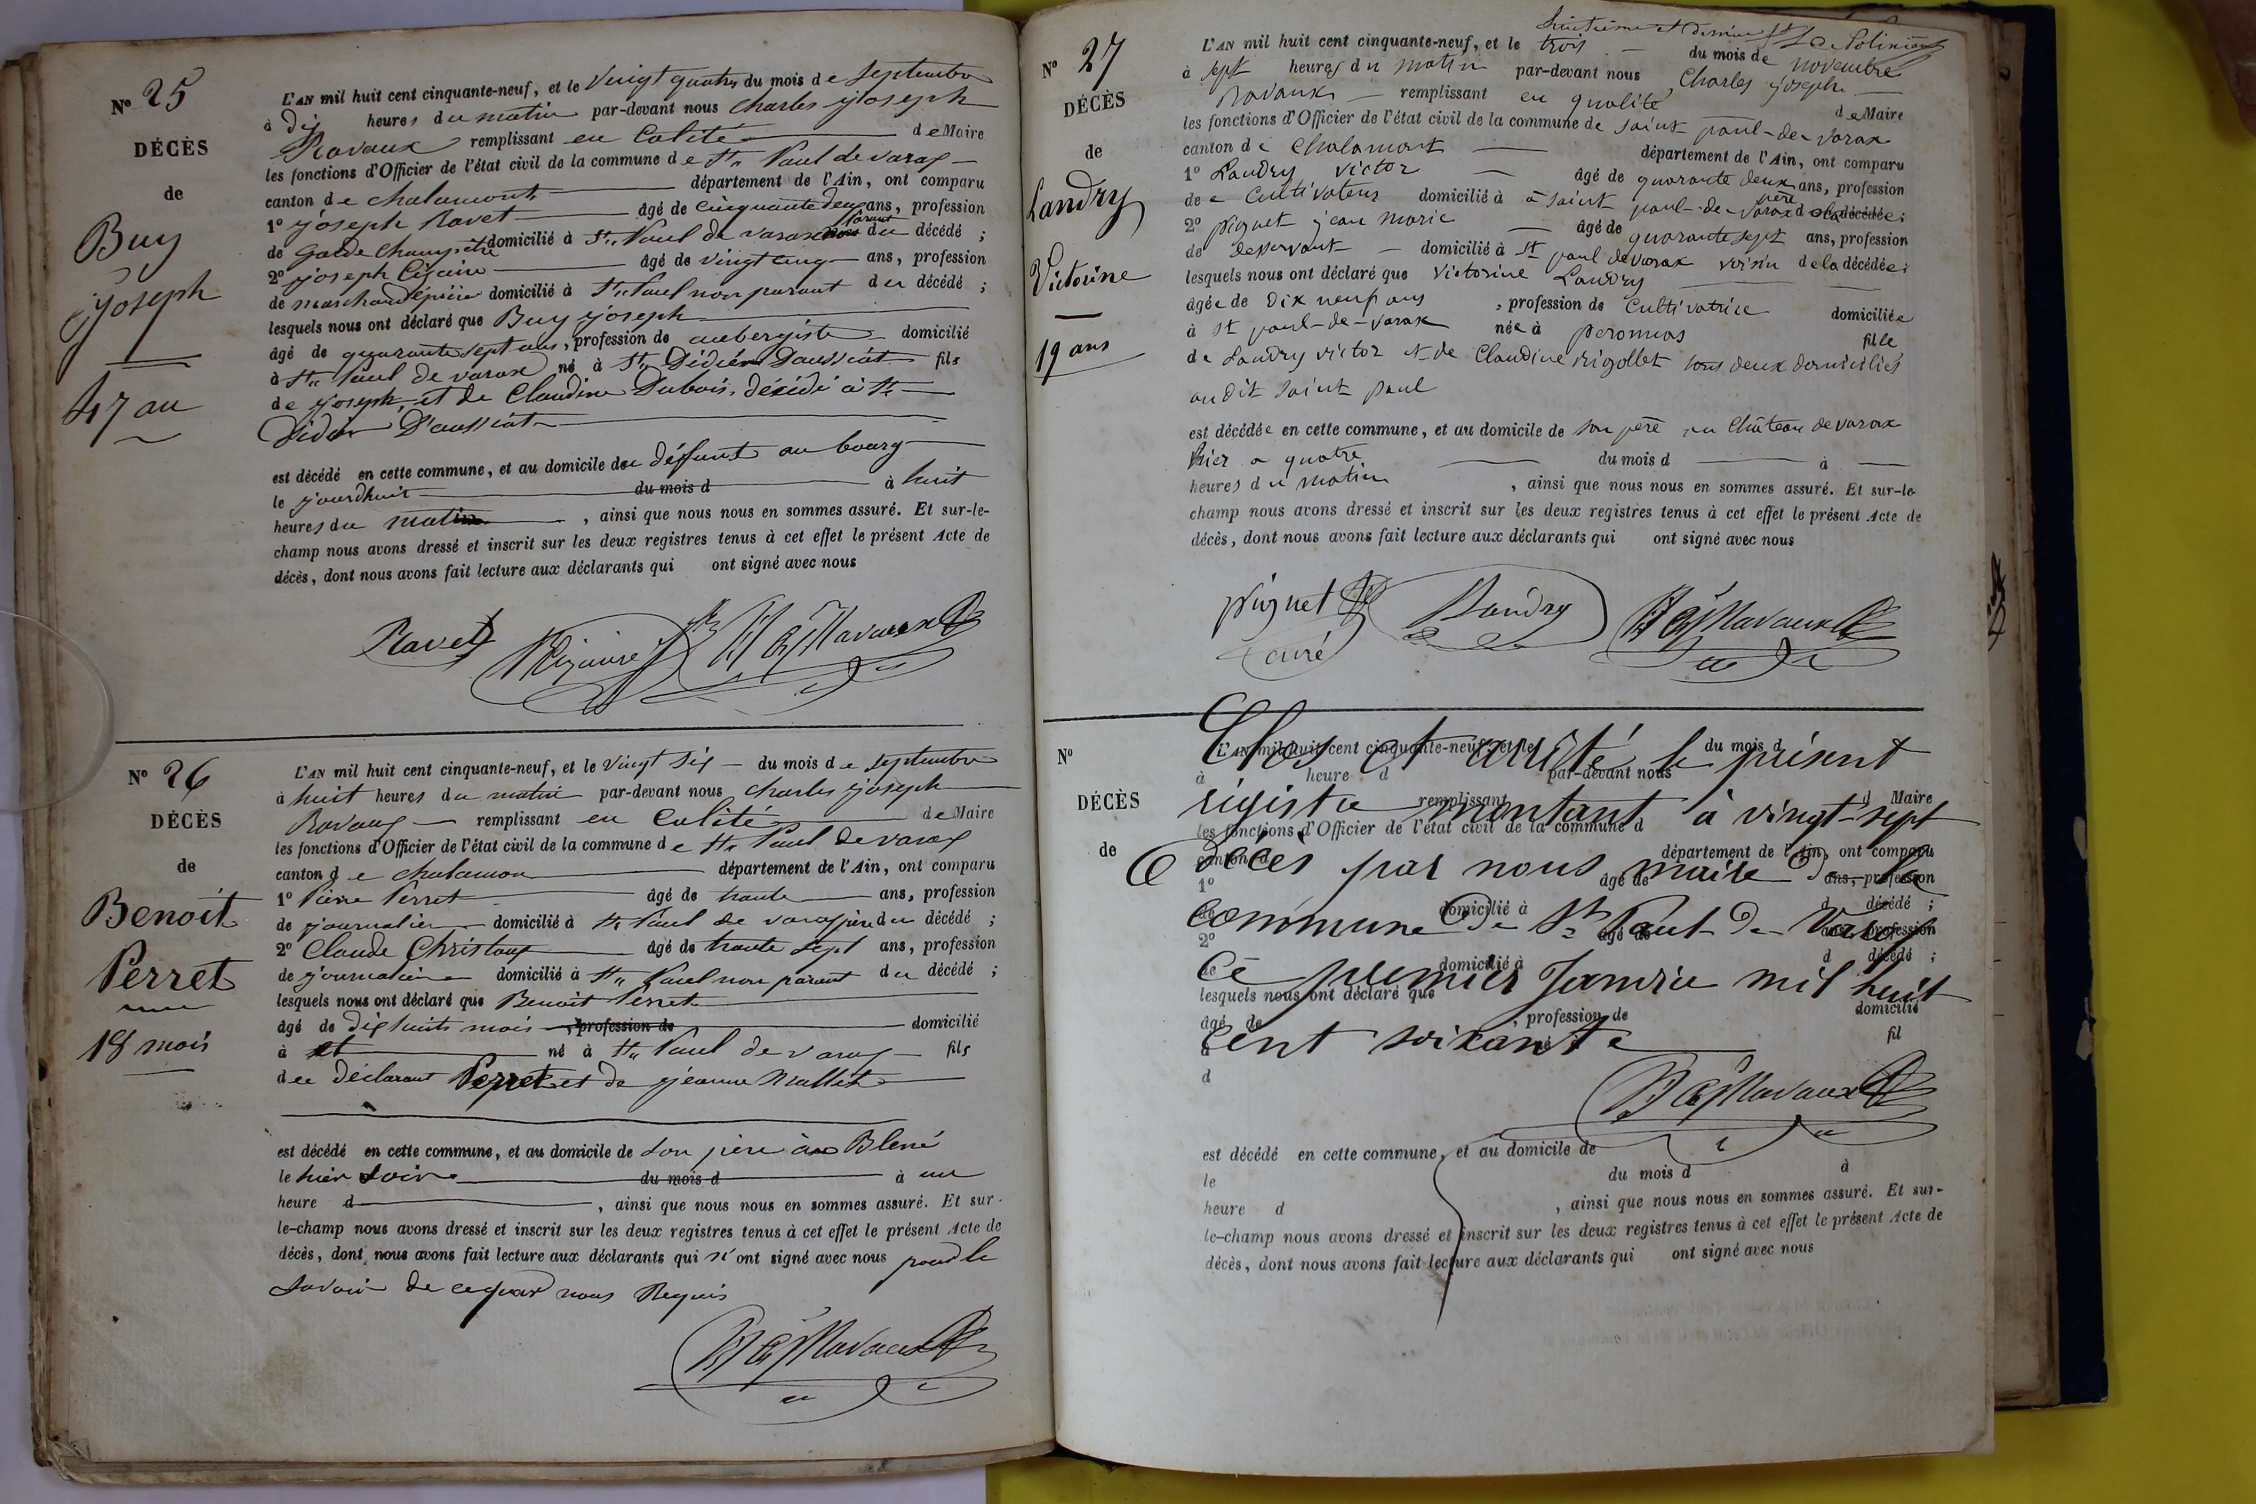 N° 25
DÉCÈS
de
Buy
Joseph
47 an
L'AN mil huit cent cinquante-neuf, et le vingt quatre du mois de septembre
à dix heures du matin par-devant nous Charles Joseph
Ravaux remplissant en Calité de Maire
les fonctions d'Officier de l'état civil de la commune de St Paul de varax
canton de chalamont département de l'Ain, ont comparu
1° Joseph Ravet âgé de cinquante deux ans, profession
de Garde Champêtre domicilié à St Paul de varax parent du décédé ;
2° Joseph âgé de vingt cinq ans, profession
de marchand épicier domicilié à St Paul non parant du décédé ;
lesquels nous ont déclaré que Buy Joseph
âgé de quarante sept ans, profession de aubergiste domicilié
à St Paul de varax né à St Didier Daussiat fils
de Joseph et de Claudine Dubois, décédé à St
Didier D'aussiat
est décédé en cette commune, et au domicile du deffunt au bourg
le jourdhuit du mois d à huit
heures du matin , ainsi que nous nous en sommes assuré. Et sur-le-
champ nous avons dressé et inscrit sur les deux registres tenus à cet effet le présent Acte de
décès, dont nous avons fait lecture aux déclarants qui ont signé avec nous
Ravet Ravaux
N° 26
DÉCÈS
de
Benoit
Perret
18 mois
L'AN mil huit cent cinquante-neuf, et le vingt six du mois de septembre
à huit heures du matin par-devant nous Charles Joseph
Ravaux remplissant en Calité de Maire
les fonctions d'Officier de l'état civil de la commune de St Paul de varax
canton de chalamon département de l'Ain, ont comparu
1° Pierre Perret âgé de trante ans, profession
de journalier domicilié à St Paul de varax père du décédé ;
2° Claude Christoup âgé de trante sept ans, profession
de journalier domicilié à St Paul non parant du décédé ;
lesquels nous ont déclaré que Benoit Perret
âgé de dix huits mois , profession de domicilié
à et né à St Paul de varax fils
du déclarant Perret et de jeanne Mallet
est décédé en cette commune, et au domicile de son père aux Blené
le hier soire du mois d à une
heure d , ainsi que nous nous en sommes assuré. Et sur-
le-champ nous avons dressé et inscrit sur les deux registres tenus à cet effet le présent Acte de
décès, dont nous avons fait lecture aux déclarants qui n'ont signé avec nous pour le
savoir de ce par nous Requis
Ravaux
huitième et dernier
N° 27
DÉCÈS
de
Landry
Victorine
19 ans
L'AN mil huit cent cinquante-neuf, et le trois du mois de novembre
à sept heures du matin par-devant nous Charles Joseph
Ravaux remplissant en qualité de Maire
les fonctions d'Officier de l'état civil de la commune de saint paul-de-varax
canton de Chalamont département de l'Ain, ont comparu
1° Landry victor âgé de quarante deux ans, profession
de Cultivateur domicilié à à saint paul-de-varax père de la décédée ;
2° piguet jean marie âgé de quarante sept ans, profession
de desservant domicilié à St paul de varax voisin de la décédée ;
lesquels nous ont déclaré que Victorine Landry
âgée de dix neuf ans , profession de Cultivatrice domiciliée
à St paul-de-varax née à peronnas fille
de Landry victor et de Claudine rigollet tous deux domiciliés
audit saint paul
est décédée en cette commune, et au domicile de son père au Château de varax
hier a quatre du mois d à
heures du matin , ainsi que nous nous en sommes assuré. Et sur-le-
champ nous avons dressé et inscrit sur les deux registres tenus à cet effet le présent Acte de
décès, dont nous avons fait lecture aux déclarants qui ont signé avec nous
piguet Landry Ravaux
curé
N°
DÉCÈS
de
Clos et arrêté le présent
régistre montant à vingt-sept
décès par nous maire de la
commune de St Paul de Varax
Ce premier Janvier mil huit
cent soixante
Ravaux
L'AN mil huit cent cinquante-neuf, et le du mois d
à heure d par-devant nous
remplissant d Maire
les fonctions d'Officier de l'état civil de la commune d
canton d département de l'Ain, ont comparu
1° âgé de ans, profession
de domicilié à d décédé ;
2° âgé de ans, profession
de domicilié à d décédé ;
lesquels nous ont déclaré que
âgé de , profession de domicilié
à né à fil
d
est décédé en cette commune, et au domicile de
le du mois d à
heure d , ainsi que nous nous en sommes assuré. Et sur-
le-champ nous avons dressé et inscrit sur les deux registres tenus à cet effet le présent Acte de
décès, dont nous avons fait lecture aux déclarants qui ont signé avec nous